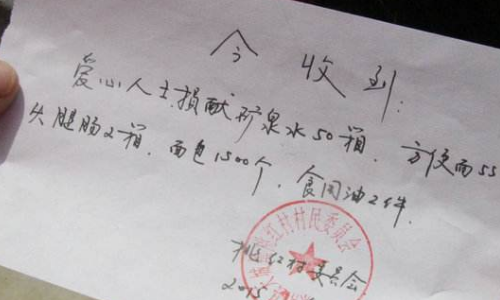 今收到:
爱心人士损献矿泉水50箱. 方便面55
火腿肠2箱. 面包1500个. 食用油2件.
桃红村委员会
红村村民委员会